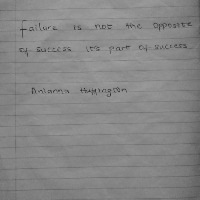 failure is not the opposite
of success it's part of success
Arianna Huffington